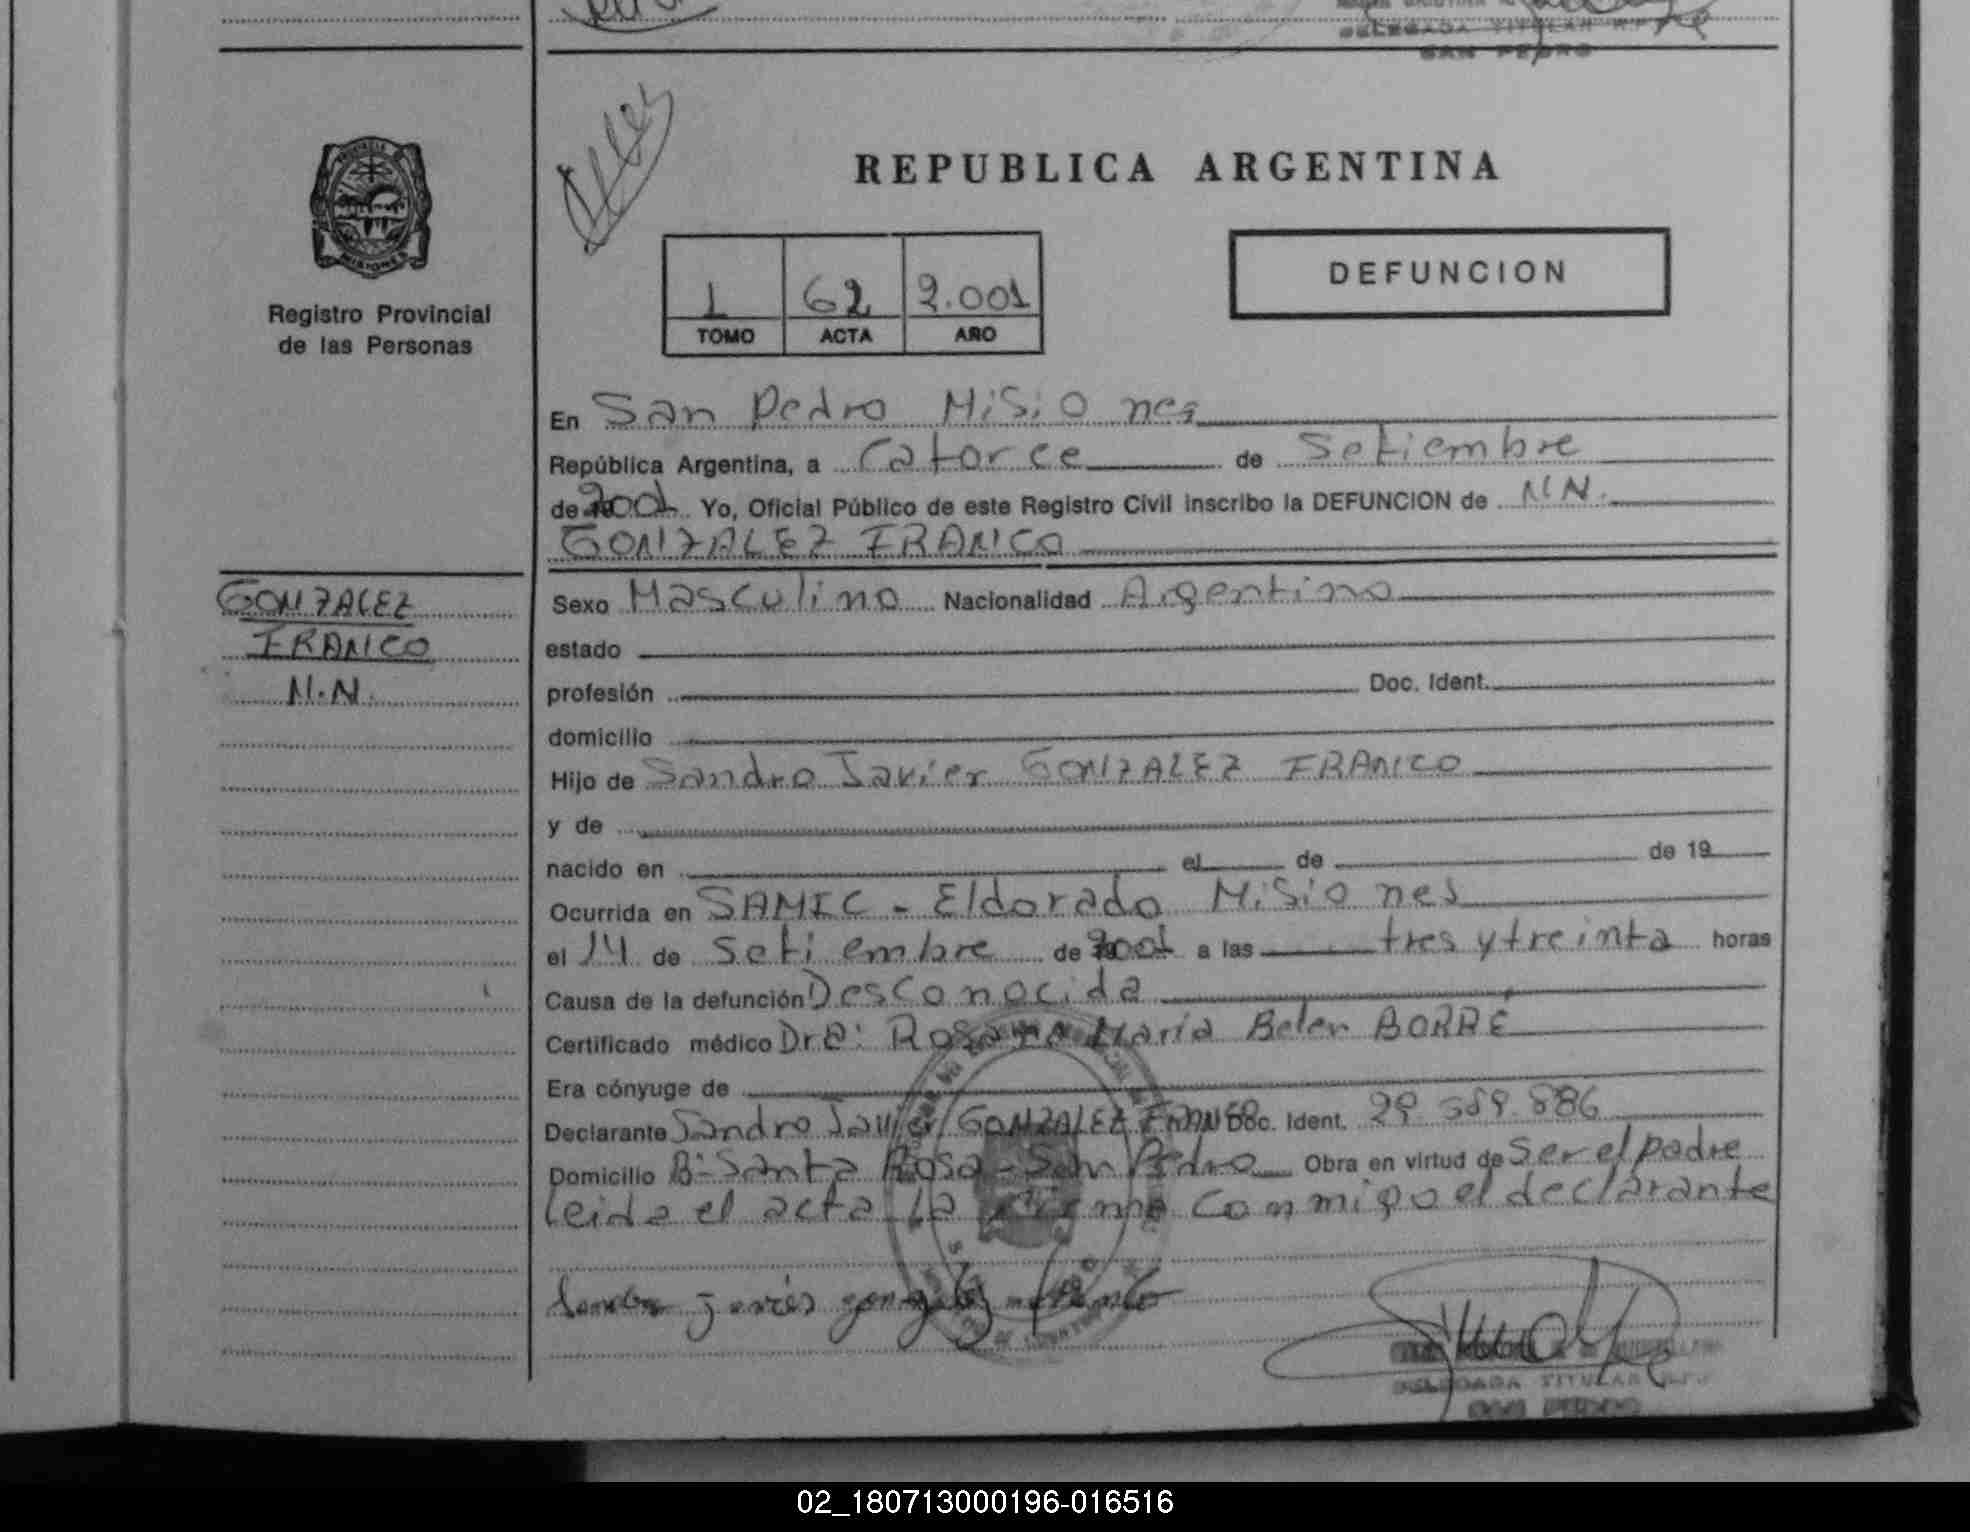 DELEGADA TITULAR R.P.P.
SAN PEDRO
PROVINCIA DE
MISIONES
Registro Provincial
de las Personas
REPUBLICA ARGENTINA
DEFUNCION
1 62 2.001
TOMO ACTA AÑO
En San Pedro Misiones
República Argentina, a Catorce de Setiembre
de 2001 Yo, Oficial Público de este Registro Civil inscribo la DEFUNCION de N.N.
GONZALEZ FRANCO
GONZALEZ
FRANCO
N.N.
Sexo Masculino Nacionalidad Argentino
estado
profesión Doc. Ident.
domicilio
Hijo de Sandro Javier GONZALEZ FRANCO
y de
nacido en el de de 19
Ocurrida en SAMIC - Eldorado Misiones
el 14 de Setiembre de 2001 a las tres y treinta horas
Causa de la defunción Desconocida
Certificado médico Dra: Rosana María Belen BORRÉ
Era cónyuge de
Declarante Sandro Javier GONZALEZ FRANCO Doc. Ident. 29.589.886
Domicilio Bº Santa Rosa - San Pedro Obra en virtud de ser el padre
leida el acta la firma conmigo el declarante
DELEGADA TITULAR R.P.P.
SAN PEDRO
02_180713000196-016516